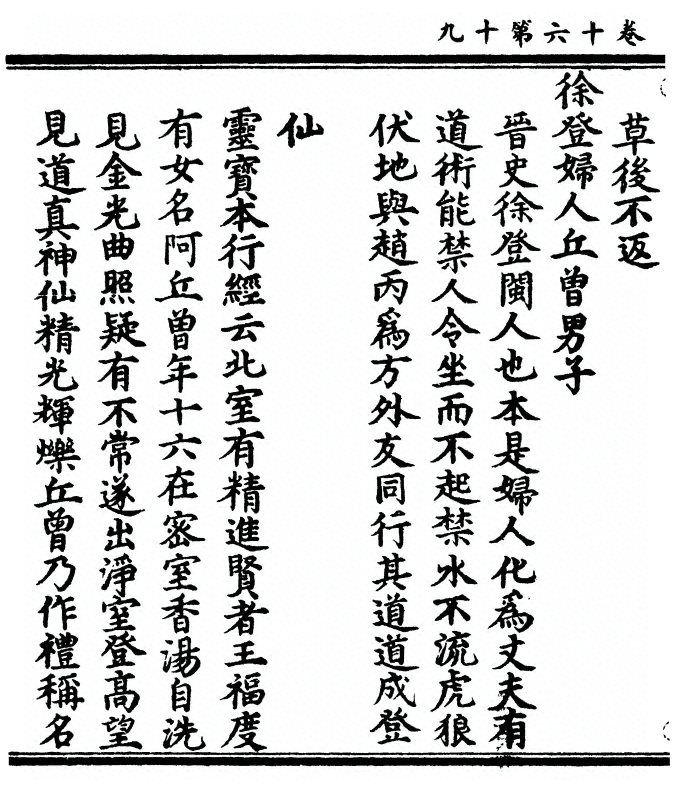 卷十六第十九
草後不返
徐登婦人丘曾男子
晉史徐登閩人也本是婦人化爲丈夫有
道術能禁人令坐而不起禁水不流虎狼
伏地與趙丙爲方外友同行其道道成登
仙
靈寶本行經云北室有精進賢者王福度
有女名阿丘曾年十六在密室香湯自洗
見金光曲照疑有不常遂出淨室登高望
見道真神仙精光輝爍丘曾乃作禮稱名